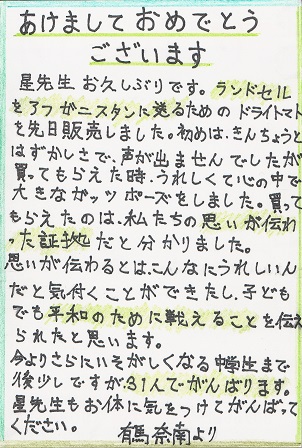 あけましておめでとう
ございます
星先生 お久しぶりです。ランドセル
をアフガニスタンに送るためのドライトマト
を先日販売しました。初めは、きんちょうと
はずかしさで、声が出ませんでしたが
買ってもらえた時、うれしくて心の中で
大きなガッツポーズをしました。買って
もらえたのは、私たちの思いが伝わ
った証拠だと分かりました。
思いが伝わるとは、こんなにうれしいん
だと気付くことができたし、子ども
でも平和のために戦えることを伝え
られたと思います。
今よりさらにいそがしくなる中学生まで
後少しですが31人でがんばります。
星先生もお体に気をつけてがんばって
ください。
有馬奈南より